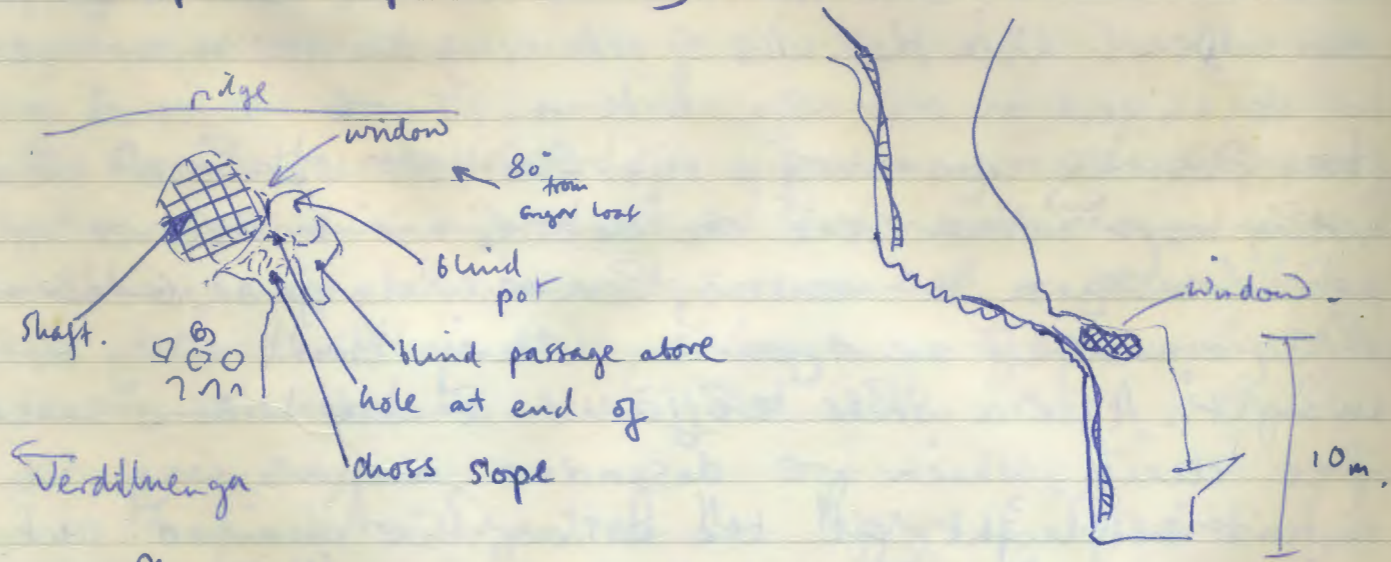 ridge
window
80° from
sugar loaf
blind
pot
Shaft.
blind passage above
hole at end of
choss slope
Verdilluenga
window.
10m.